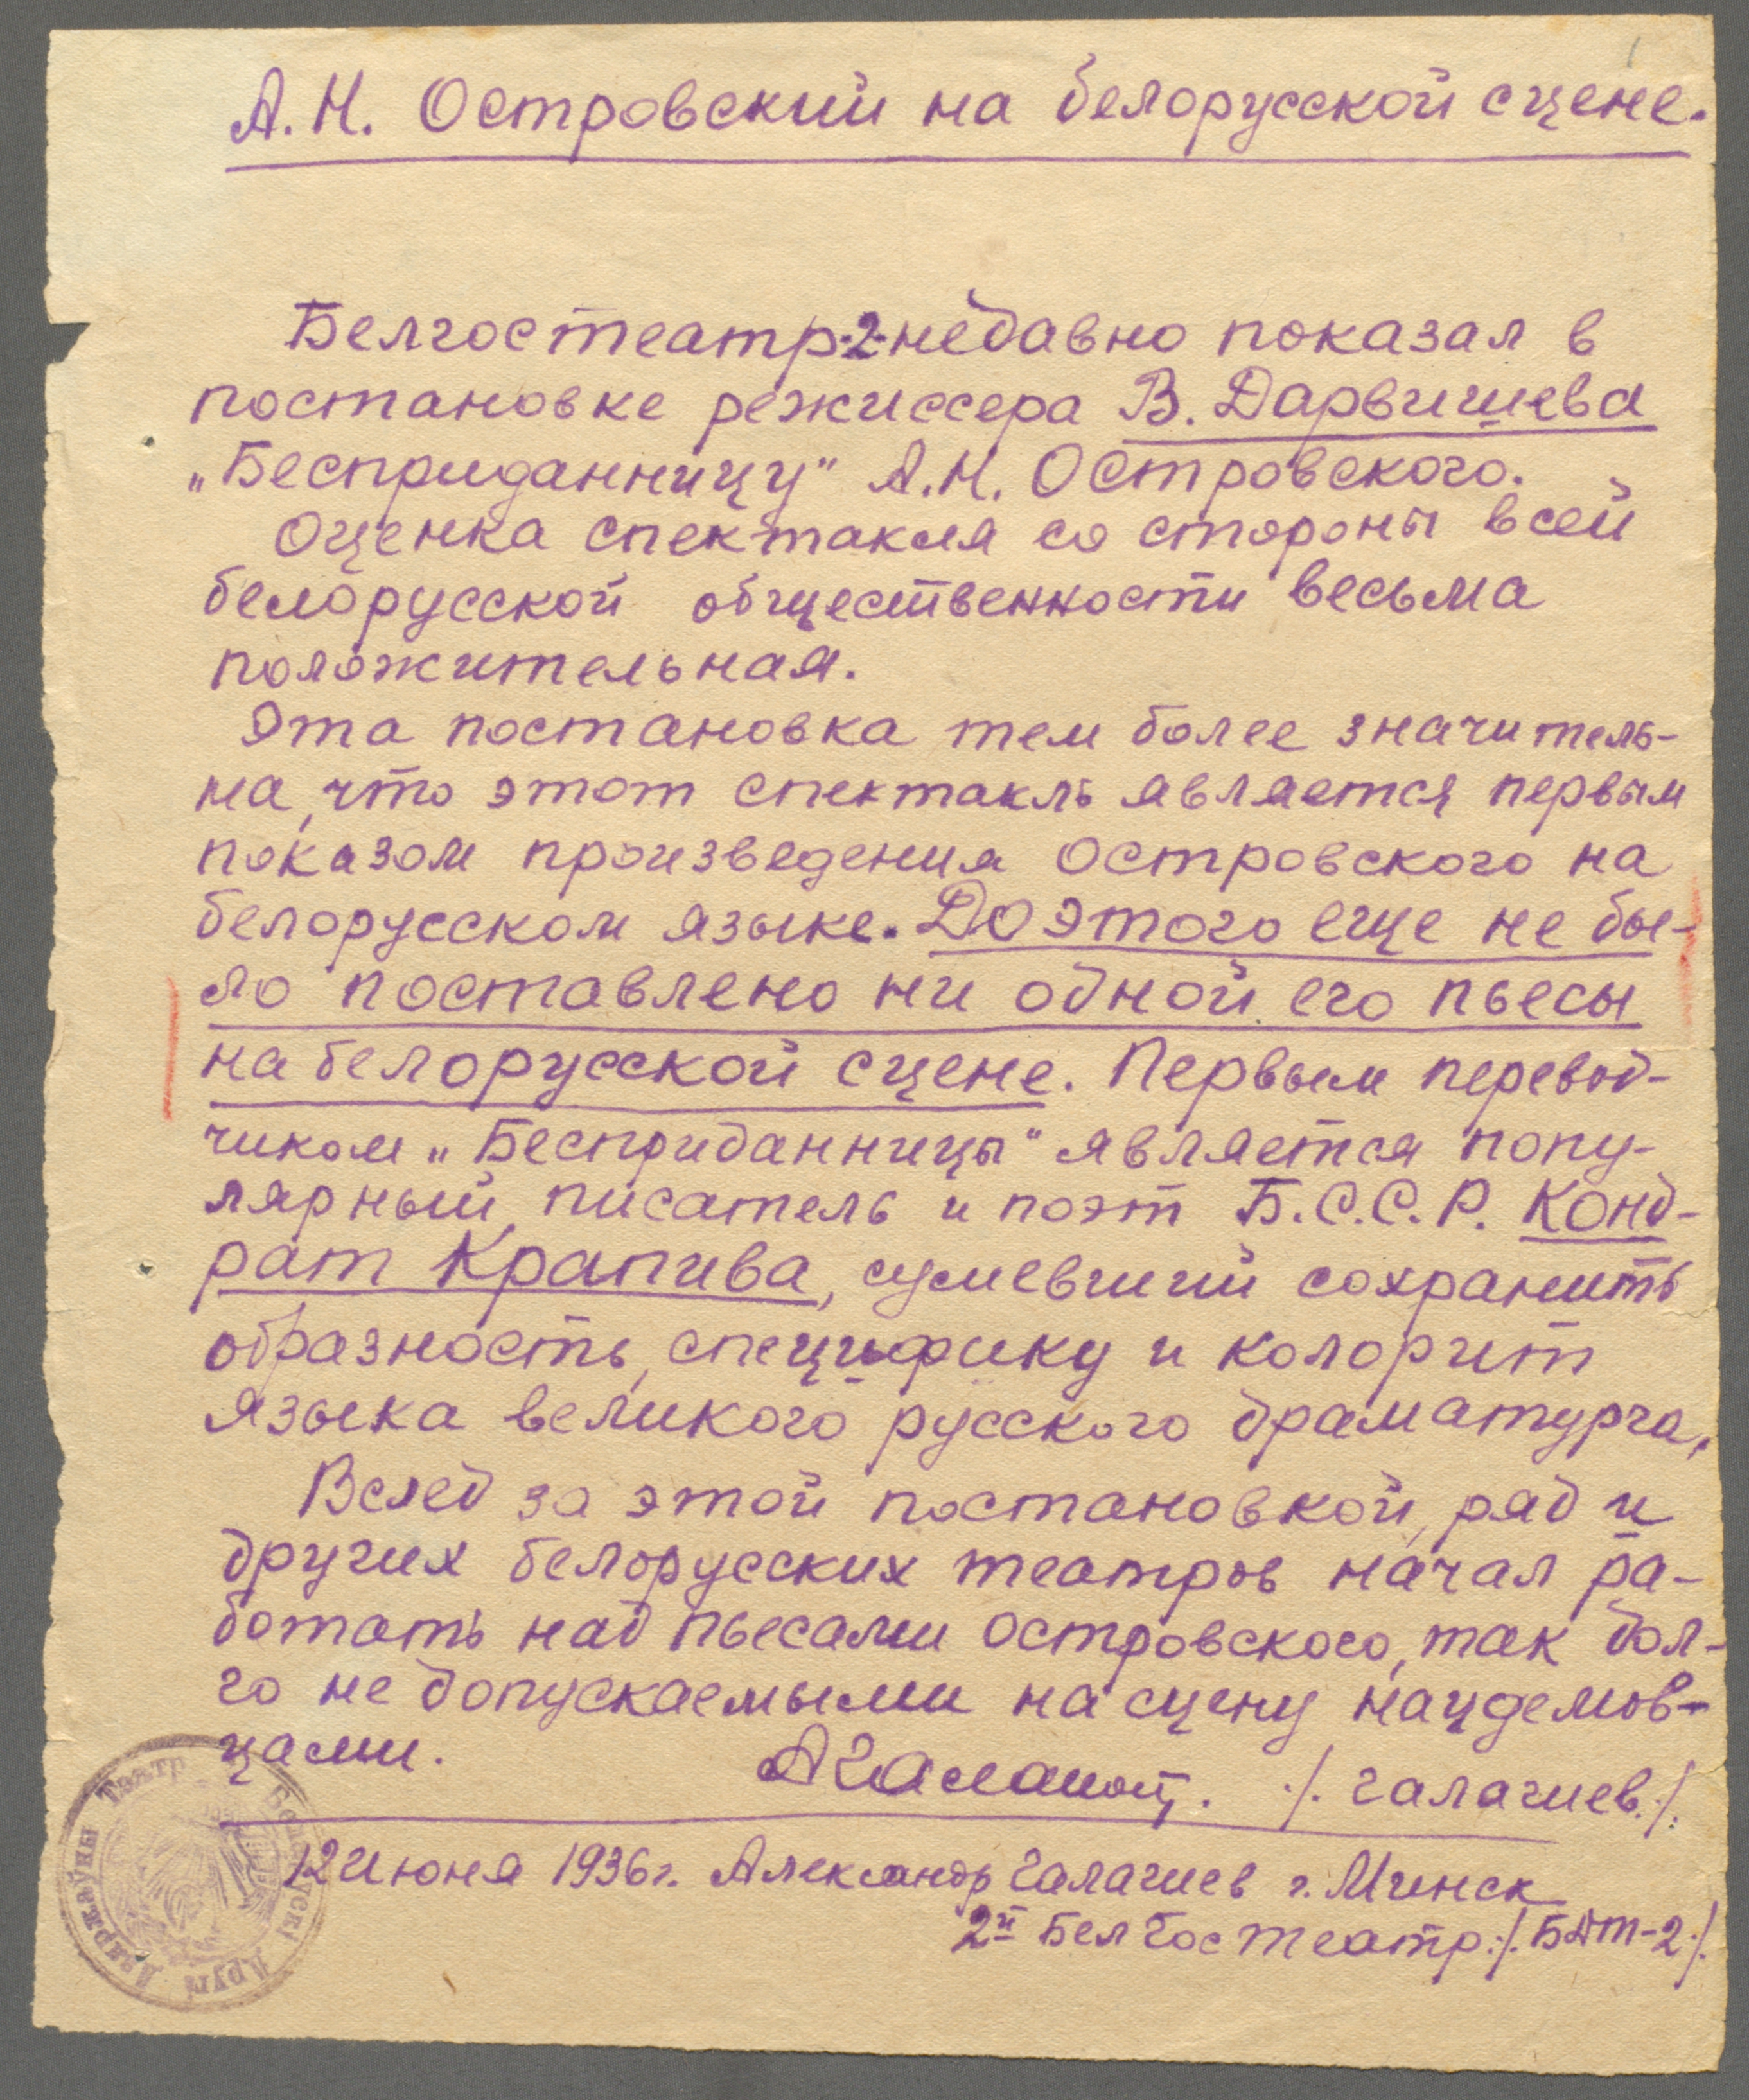 А. Н. Островский на белорусской сцене.
Белгостеатр-2-недавно показал в
постановке режиссера В. Дарвишева
„Бесприданницу" А. Н. Островского.
Оценка спектакля со стороны всей
белорусской общественности весьма
положительная.
Эта постановка тем более значитель-
на, что этот спектакль является первым
показом произведения Островского на
белорусском языке. До этого еще не бы-
ло поставлено ни одной его пьесы
на белорусской сцене. Первым перевод-
чиком „Бесприданницы" является попу-
лярный, писатель и поэт Б.С.С.Р. Конд-
рат Крапива, сумевший сохранить
образность, специфику и колорит
языка великого русского драматурга.
Вслед за этой постановкой, ряд и
других белорусских театров начал ра-
ботать над пьесами Островского, так дол-
го не допускаемыми на сцену нацдемов-
цами.
/. Галагиев ./.
12 июня 1936 г. Александр Галагиев г. Минск
2й БелГостеатр ./. БДТ-2 ./.
Беларускі Дзяржаўны Тэатр Другі